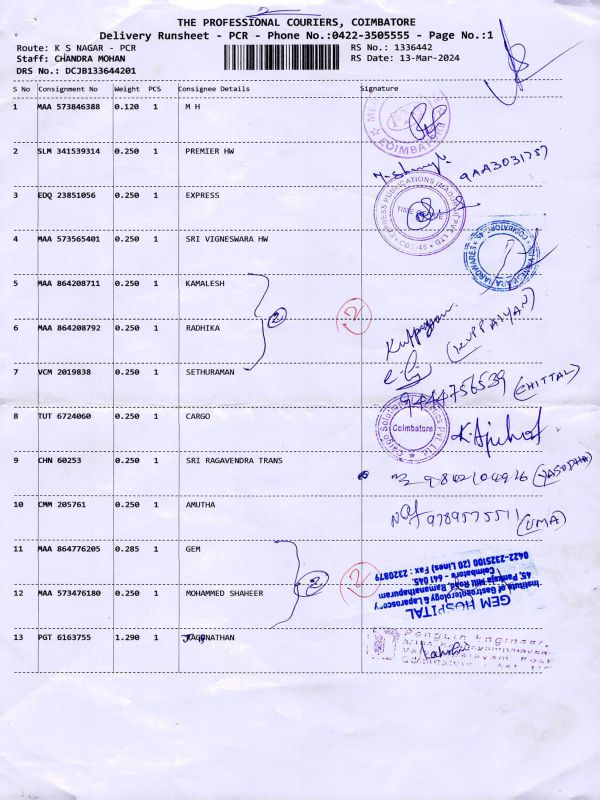 2
THE PROFESSIONAL COURIERS, COIMBATORE
Delivery Runsheet - PCR - Phone No.:0422-3505555 - Page No.:1
Route: K S NAGAR - PCR
RS No.: 1336442
Staff: CHANDRA MOHAN
RS Date: 13-Mar-2024
DRS No.: DCJB133644201
S No Consignment No Weight PCS Consignee Details Signature
1 MAA 573846388 0.120 1 M H
COIMBATORE
2 SLM 341539314 0.250 1 PREMIER HW
9AA3031757
3 EDQ 23851056 0.250 1 EXPRESS
EXPRESS PUBLICATIONS (MADURAI) PVT. LTD
CBE-45
4 MAA 573565401 0.250 1 SRI VIGNESWARA HW
5 MAA 864208711 0.250 1 KAMALESH
2
2
6 MAA 864208792 0.250 1 RADHIKA
Kuppaiyan
(KUPPAIYAN)
7 VCM 2019838 0.250 1 SETHURAMAN
9444756539 (CHITTAL)
8 TUT 6724060 0.250 1 CARGO
Coimbatore
9 CHN 60253 0.250 1 SRI RAGAVENDRA TRANS
(YASODHA)
10 CMM 205761 0.250 1 AMUTHA
9789575511 (UMA)
11 MAA 864776205 0.285 1 GEM
2
2
12 MAA 573476180 0.250 1 MOHAMMED SHAHEER
GEM HOSPITAL
Institute of Gastroenterology & Laparoscopy
45, Pankaja Mill Road, Ramanathapuram
Coimbatore - 641 045.
0422-2325100 (20 Lines) Fax : 2320879
13 PGT 6163755 1.290 1 JAGANATHAN
Penguin Engineer